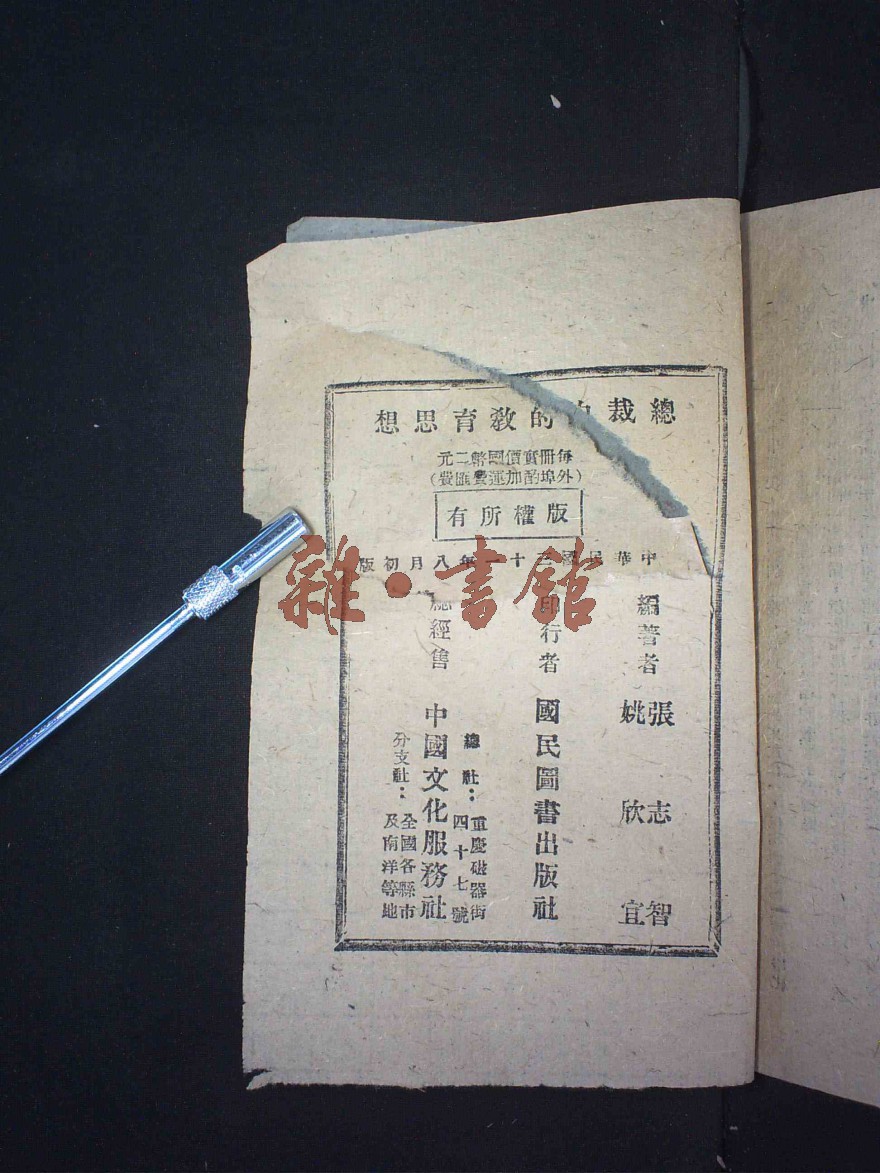 總裁的教育思想
每冊實價國幣二元
（外埠酌加運費匯費）
版權所有
中華民國三十年八月初版
編著者
張志智
姚欣宜
印行者
國民圖書出版社
總經售
中國文化服務社
總社：重慶磁器街四十七號
分支社：全國各縣市及南洋等地
雜·書館